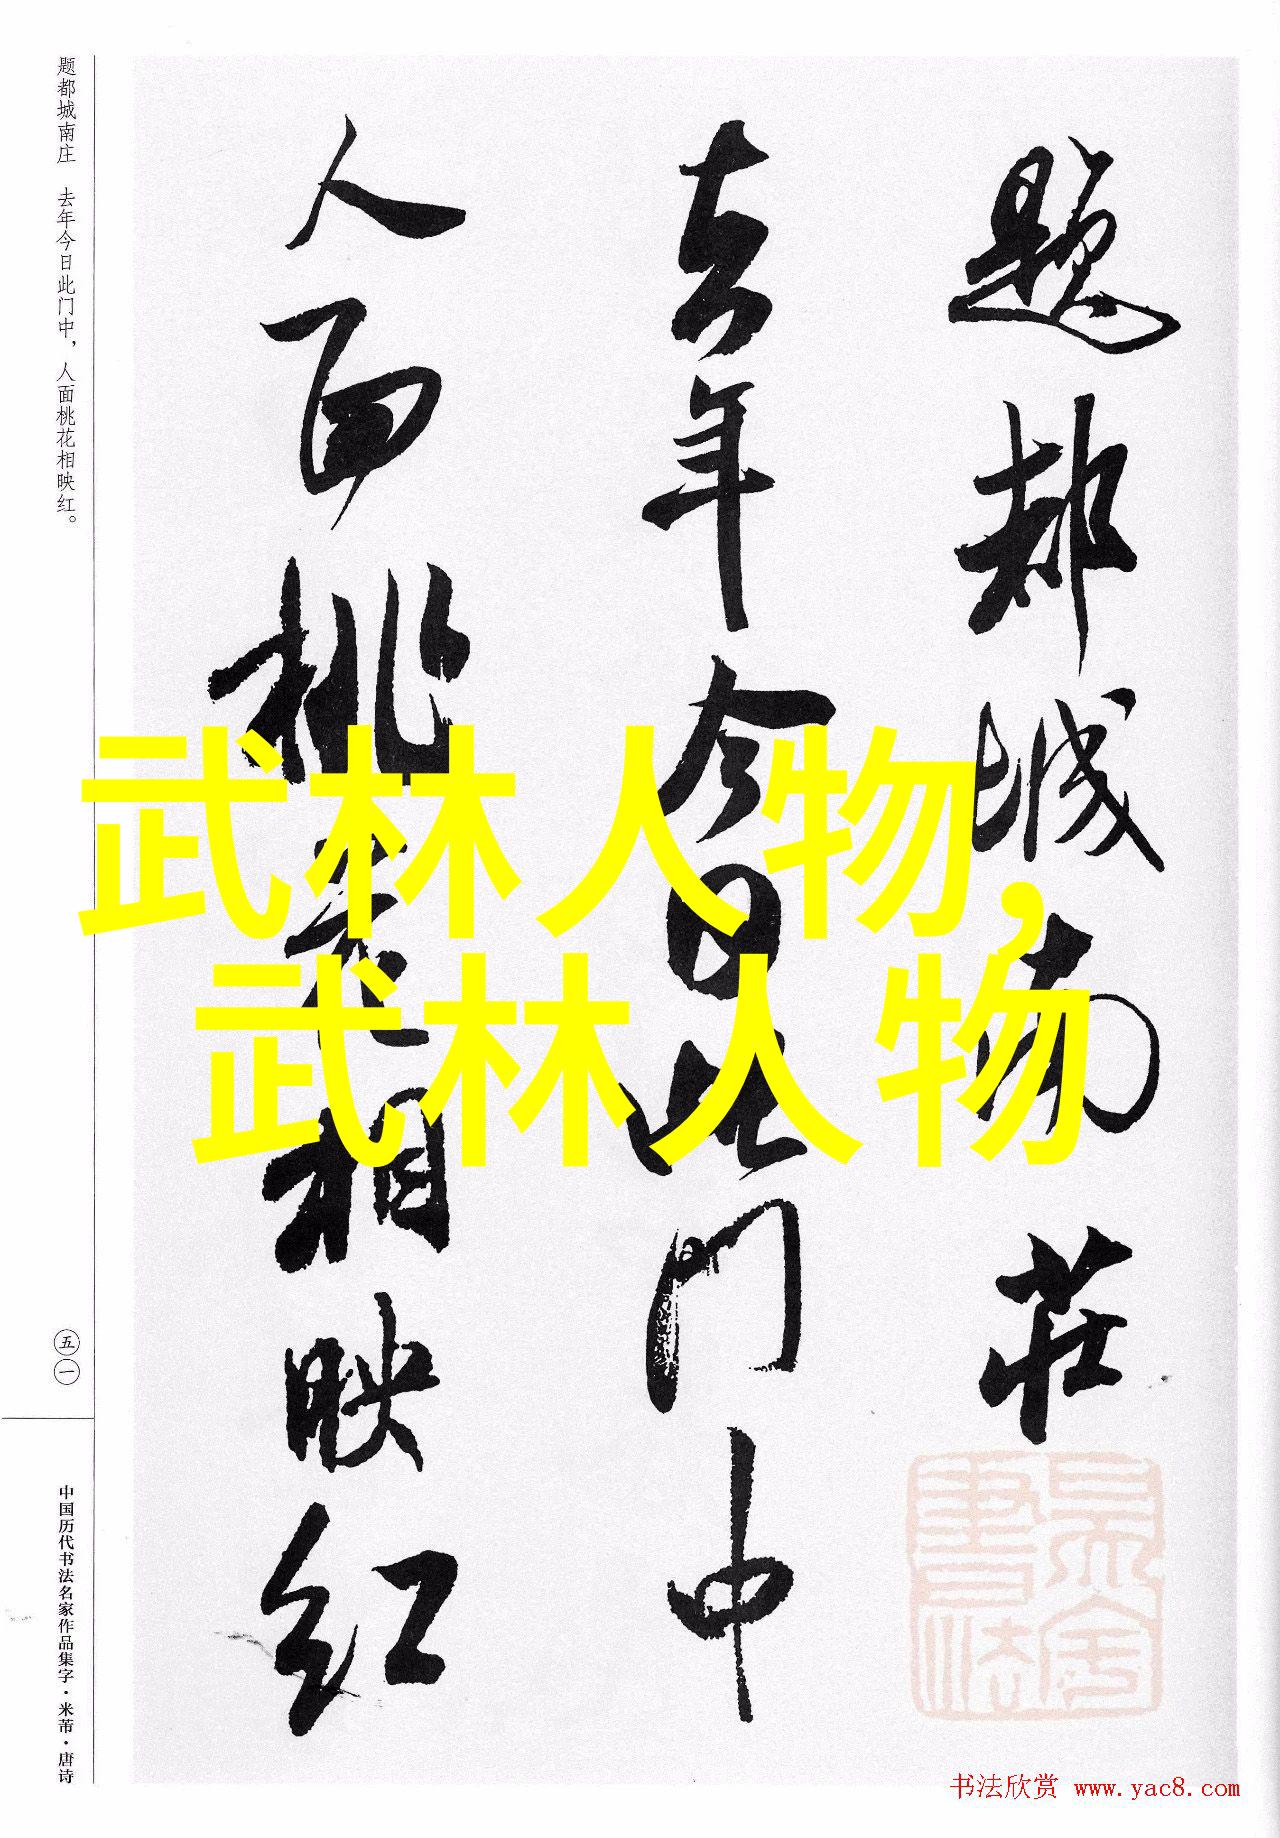 题都城南庄 去年今日此门中，人面桃花相映红。
題都城南莊
去年今日此門中
人面桃花相映红
武林人物，
武林人物
五一
中国历代书法名家作品集字·米芾·唐诗
書法欣赏 www.yac8.com